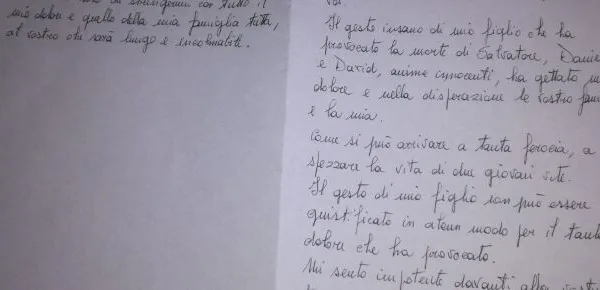 di stringermi con tutto il
mio dolore e quello della mia famiglia tutta,
al vostro che sarà lungo e incolmabile.
voi.
Il gesto insano di mio figlio che ha
provocato la morte di Salvatore, Danie
e David, anime innocenti, ha gettato
dolore e nella disperazione le vostre fam
e la mia.
Come si può arrivare a tanta ferocia, a
spezzare la vita di due giovani vite.
Il gesto di mio figlio non può essere
giustificato in alcun modo per il tanto
dolore che ha provocato.
Mi sento impotente davanti alla